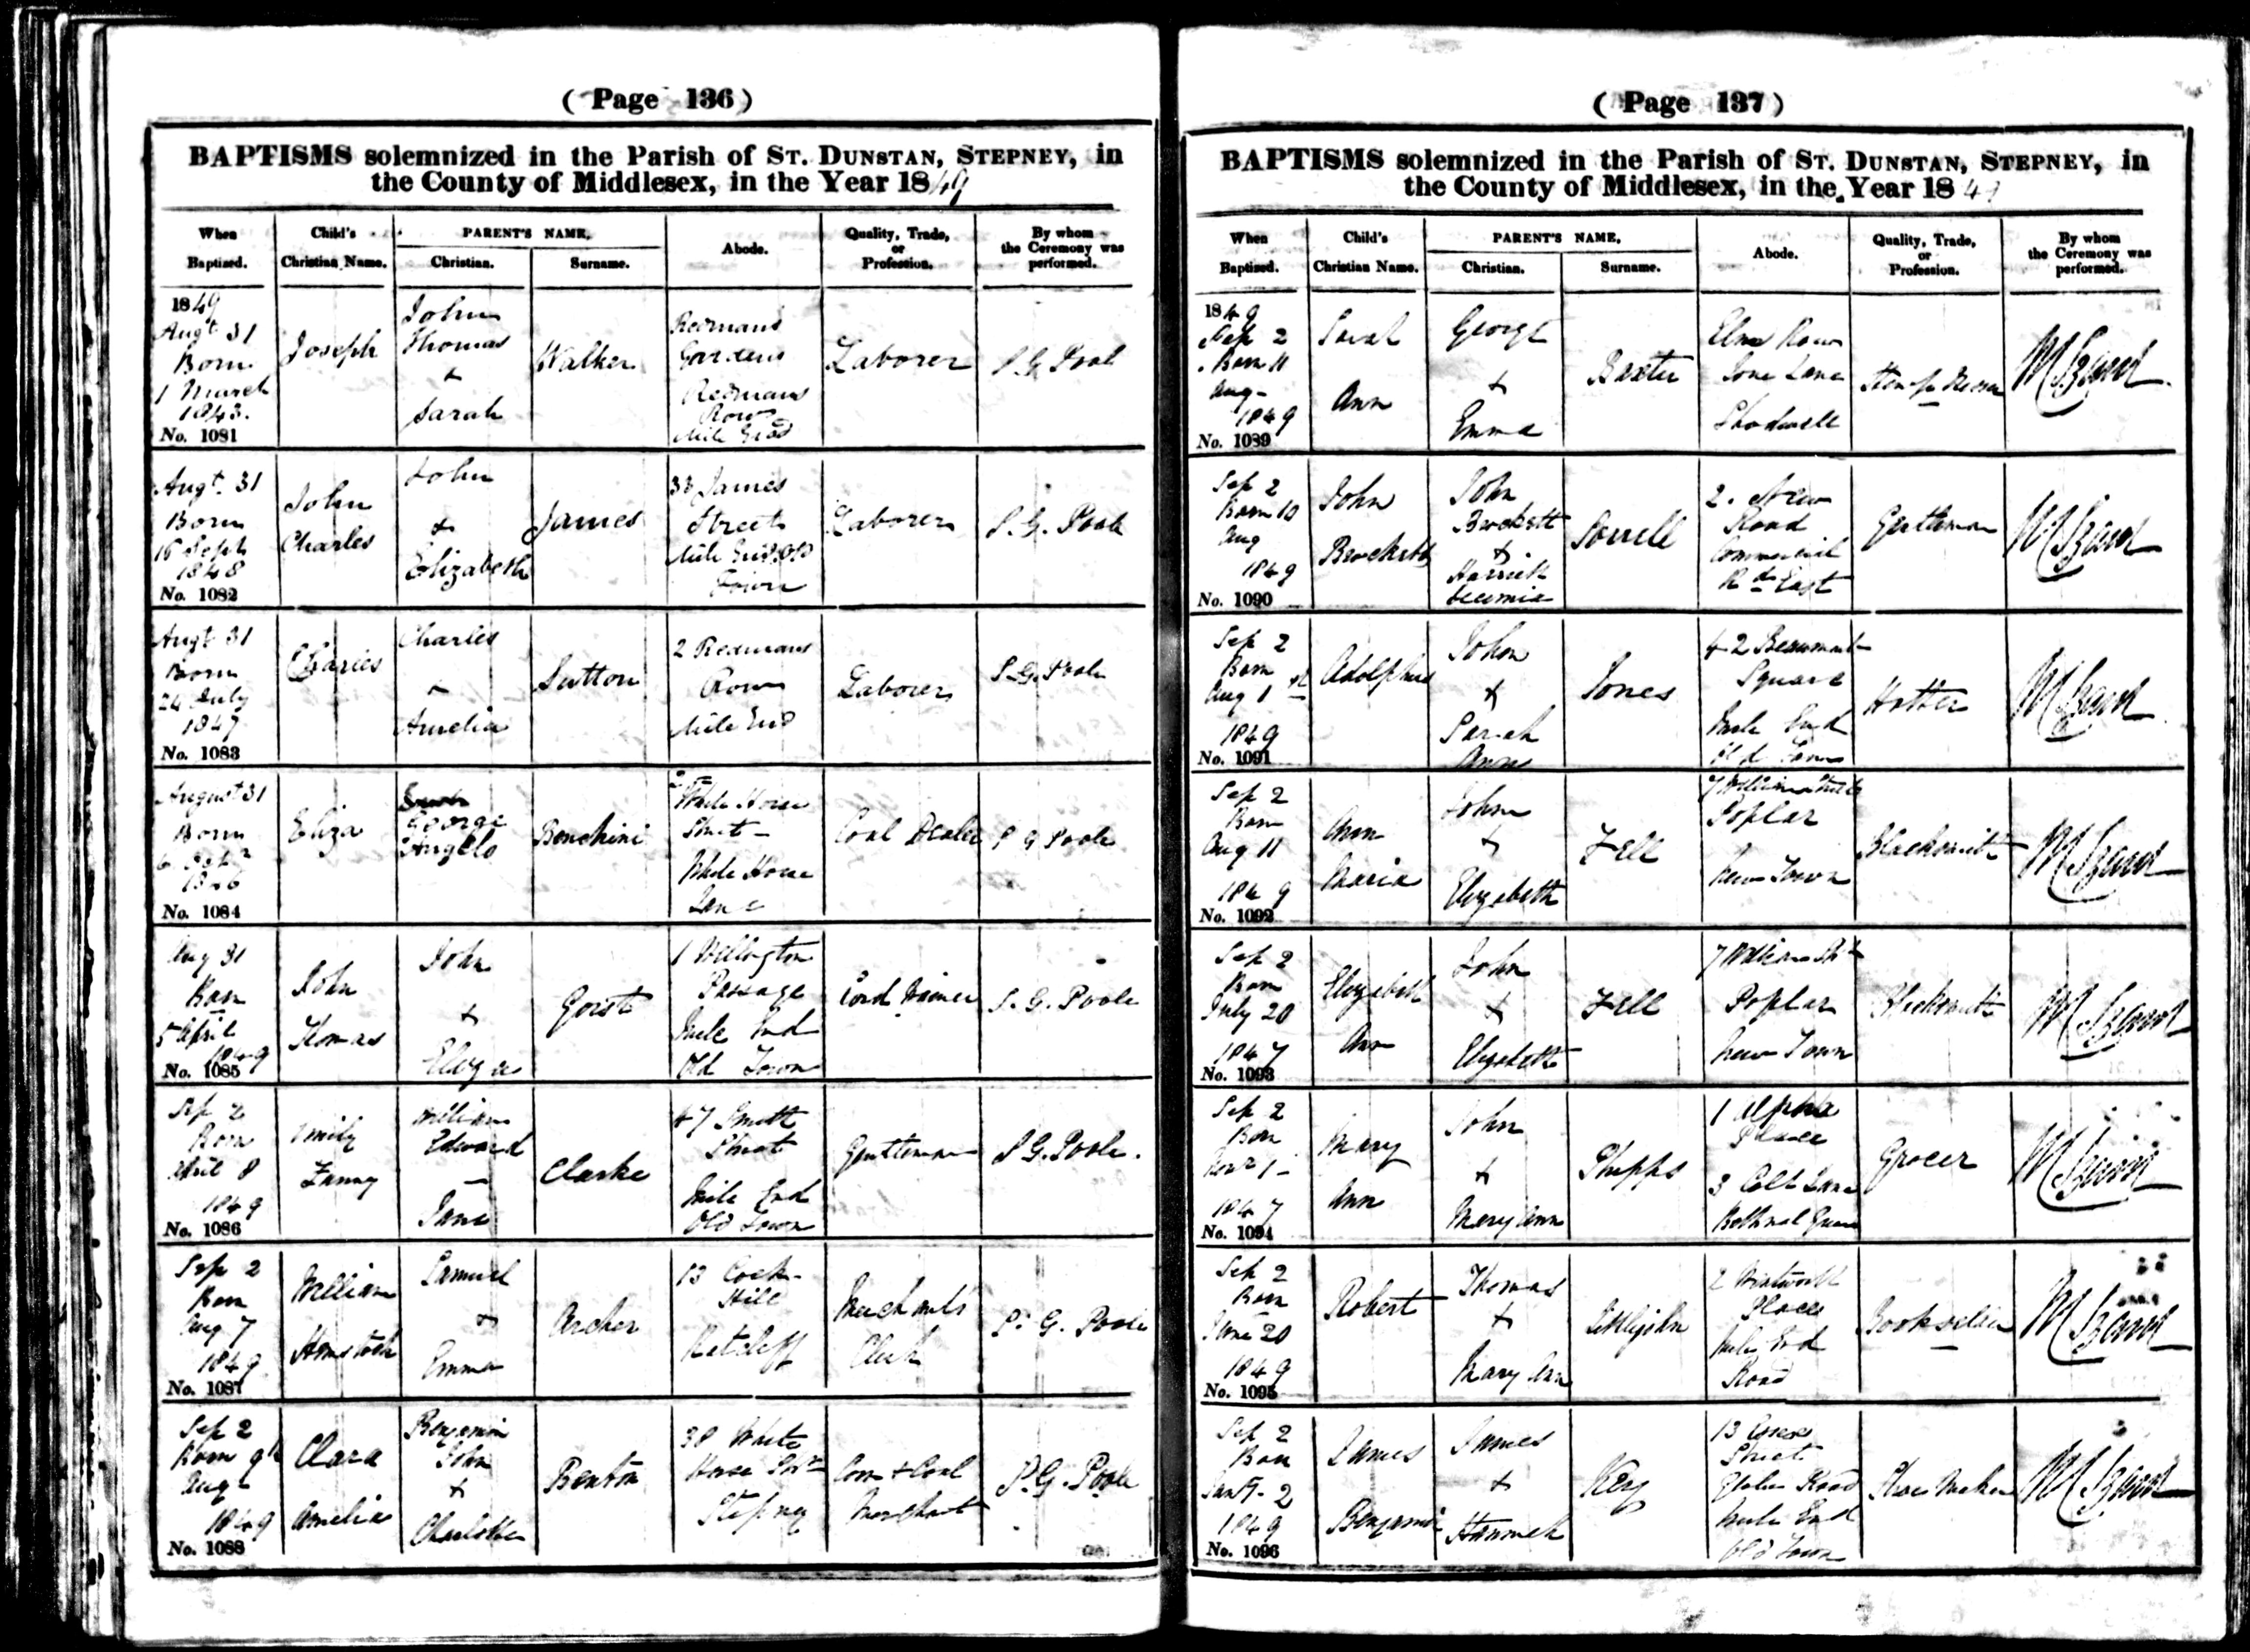 ( Page 136 )
BAPTISMS solemnized in the Parish of ST. DUNSTAN, STEPNEY, in
the County of Middlesex, in the Year 1849
When
Baptized.
Child's
Christian Name.
PARENT'S NAME.
Christian.
Surname.
Abode.
Quality, Trade,
or
Profession.
By whom
the Ceremony was
performed.
1849
Augt 31
Born
1 March
1843.
No. 1081
Joseph
John
Thomas
+
Sarah
Walker
Redmans
Gardens
Redmans
Row
Mile End
Laborer
Augt. 31
Born
Sept
1848
No. 1082
John
Charles
John
+
Elizabeth
James
33 James
Street
Mile End Old
Town
Laborer
S. G. Poole
Augt 31
Born
24 July
1847
No. 1083
Charles
Charles
+
Amelia
Sutton
2 Redmans
Row
Mile End
Laborer
S. G. Poole
August 31
Born
No. 1084
Eliza
George
Angelo
Benchini
White Horse
Street
White Horse
Lane
Coal Dealer
S G Poole
Aug 31
Born
5 April
1849
No. 1085
John
Thomas
John
+
Eliza
Gorst
1 Wellington
Passage
Mile End
Old Town
Cord Wainer
S. G. Poole
Sep 2
Born
April 8
1849
No. 1086
Emily
Fanny
William
Edward
Jane
Clarke
47 Smith
Street
Mile End
Old Town
Gentleman
S G. Poole.
Sep 2
Born
Aug 7
1849
No. 1087
William
Samuel
+
Emma
Archer
13 Cock
Hill
Ratcliff
Merchants
Clerk
S. G. Poole
Sep 2
Born 9th
Aug
1849
No. 1088
Clara
Amelia
Benjamin
John
+
Charlotte
Benton
38 White
Horse
Stepney
Corn + Coal
Merchant
S. G. Poole
( Page 137 )
BAPTISMS solemnized in the Parish of ST. DUNSTAN, STEPNEY, in
the County of Middlesex, in the Year 184
When
Baptized.
Child's
Christian Name.
PARENT'S NAME,
Christian.
Surname.
Abode.
Quality, Trade,
or
Profession.
By whom
the Ceremony was
performed.
1849
Sep 2
Born 11
Aug
1849
No. 1089
Sarah
Ann
George
+
Emma
Baxter
Elm Row
Lane
Shadwell
Sep 2
Born 10
Aug
1849
No. 1090
John
John
+
Harriet
Sorrell
2. New
Road
Commercial
Rd East
Gentleman
Sep 2
Born
Aug 1st
1849
No. 1091
Adolphus
John
+
Sarah
Anne
Jones
42 Beaumont
Square
Mile End
Old Town
Hatter
Sep 2
Born
Aug 11
1849
No. 1092
Ann
Maria
John
+
Elizabeth
Fell
7 William Street
Poplar
New Town
Blacksmith
Sep 2
Born
July 20
1847
No. 1093
Elizabeth
Ann
John
+
Elizabeth
Fell
7 William
Poplar
New Town
Blacksmith
Sep 2
Born
1847
No. 1094
Mary
Ann
John
+
Mary Ann
Phipps
1 Alpha
Place
3 Colt Lane
Bethnal Green
Grocer
Sep 2
Born
June 20
1849
No. 1095
Robert
Thomas
+
Mary Ann
Littlejohn
2 Wentworth
Place
Mile End
Road
Bookseller
Sep 2
Born
2
1849
No. 1096
James
Benjamin
James
+
Hannah
Key
13 Essex
Street
Road
Mile End
Old Town
Shoe Maker